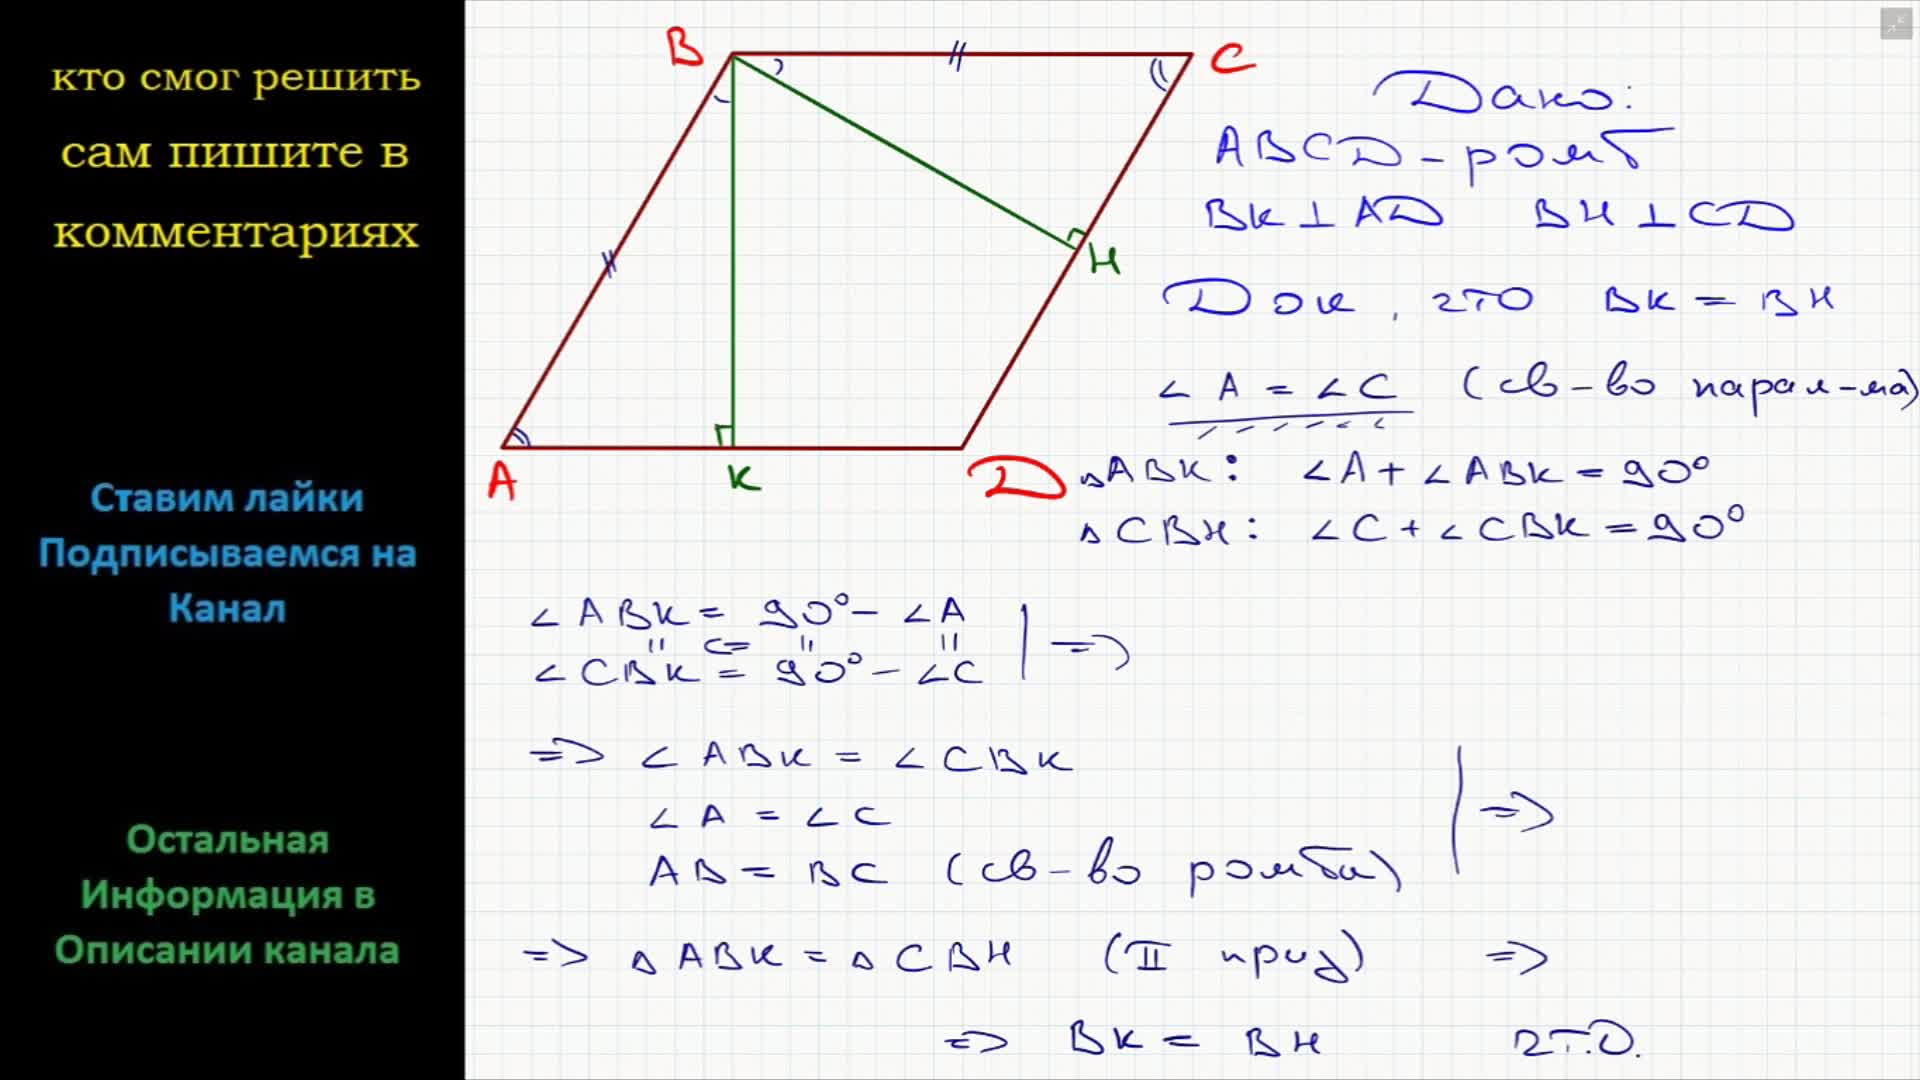 кто смог решить
сам пишите в
комментариях
Ставим лайки
Подписываемся на
Канал
Остальная
Информация в
Описании канала
B
C
H
A
K
D
Дано:
ABCD - ромб
BK ⊥ AD BH ⊥ CD
Док, что BK = BH
∠A = ∠C (св-во парал-ма)
△ABK: ∠A + ∠ABK = 90°
△CBH: ∠C + ∠CBK = 90°
∠ABK = 90° - ∠A
∠CBK = 90° - ∠C
=>
=> ∠ABK = ∠CBK
∠A = ∠C
AB = BC (св-во ромба)
=>
=> △ABK = △CBH (II приз) =>
=> BK = BH ч.т.д.